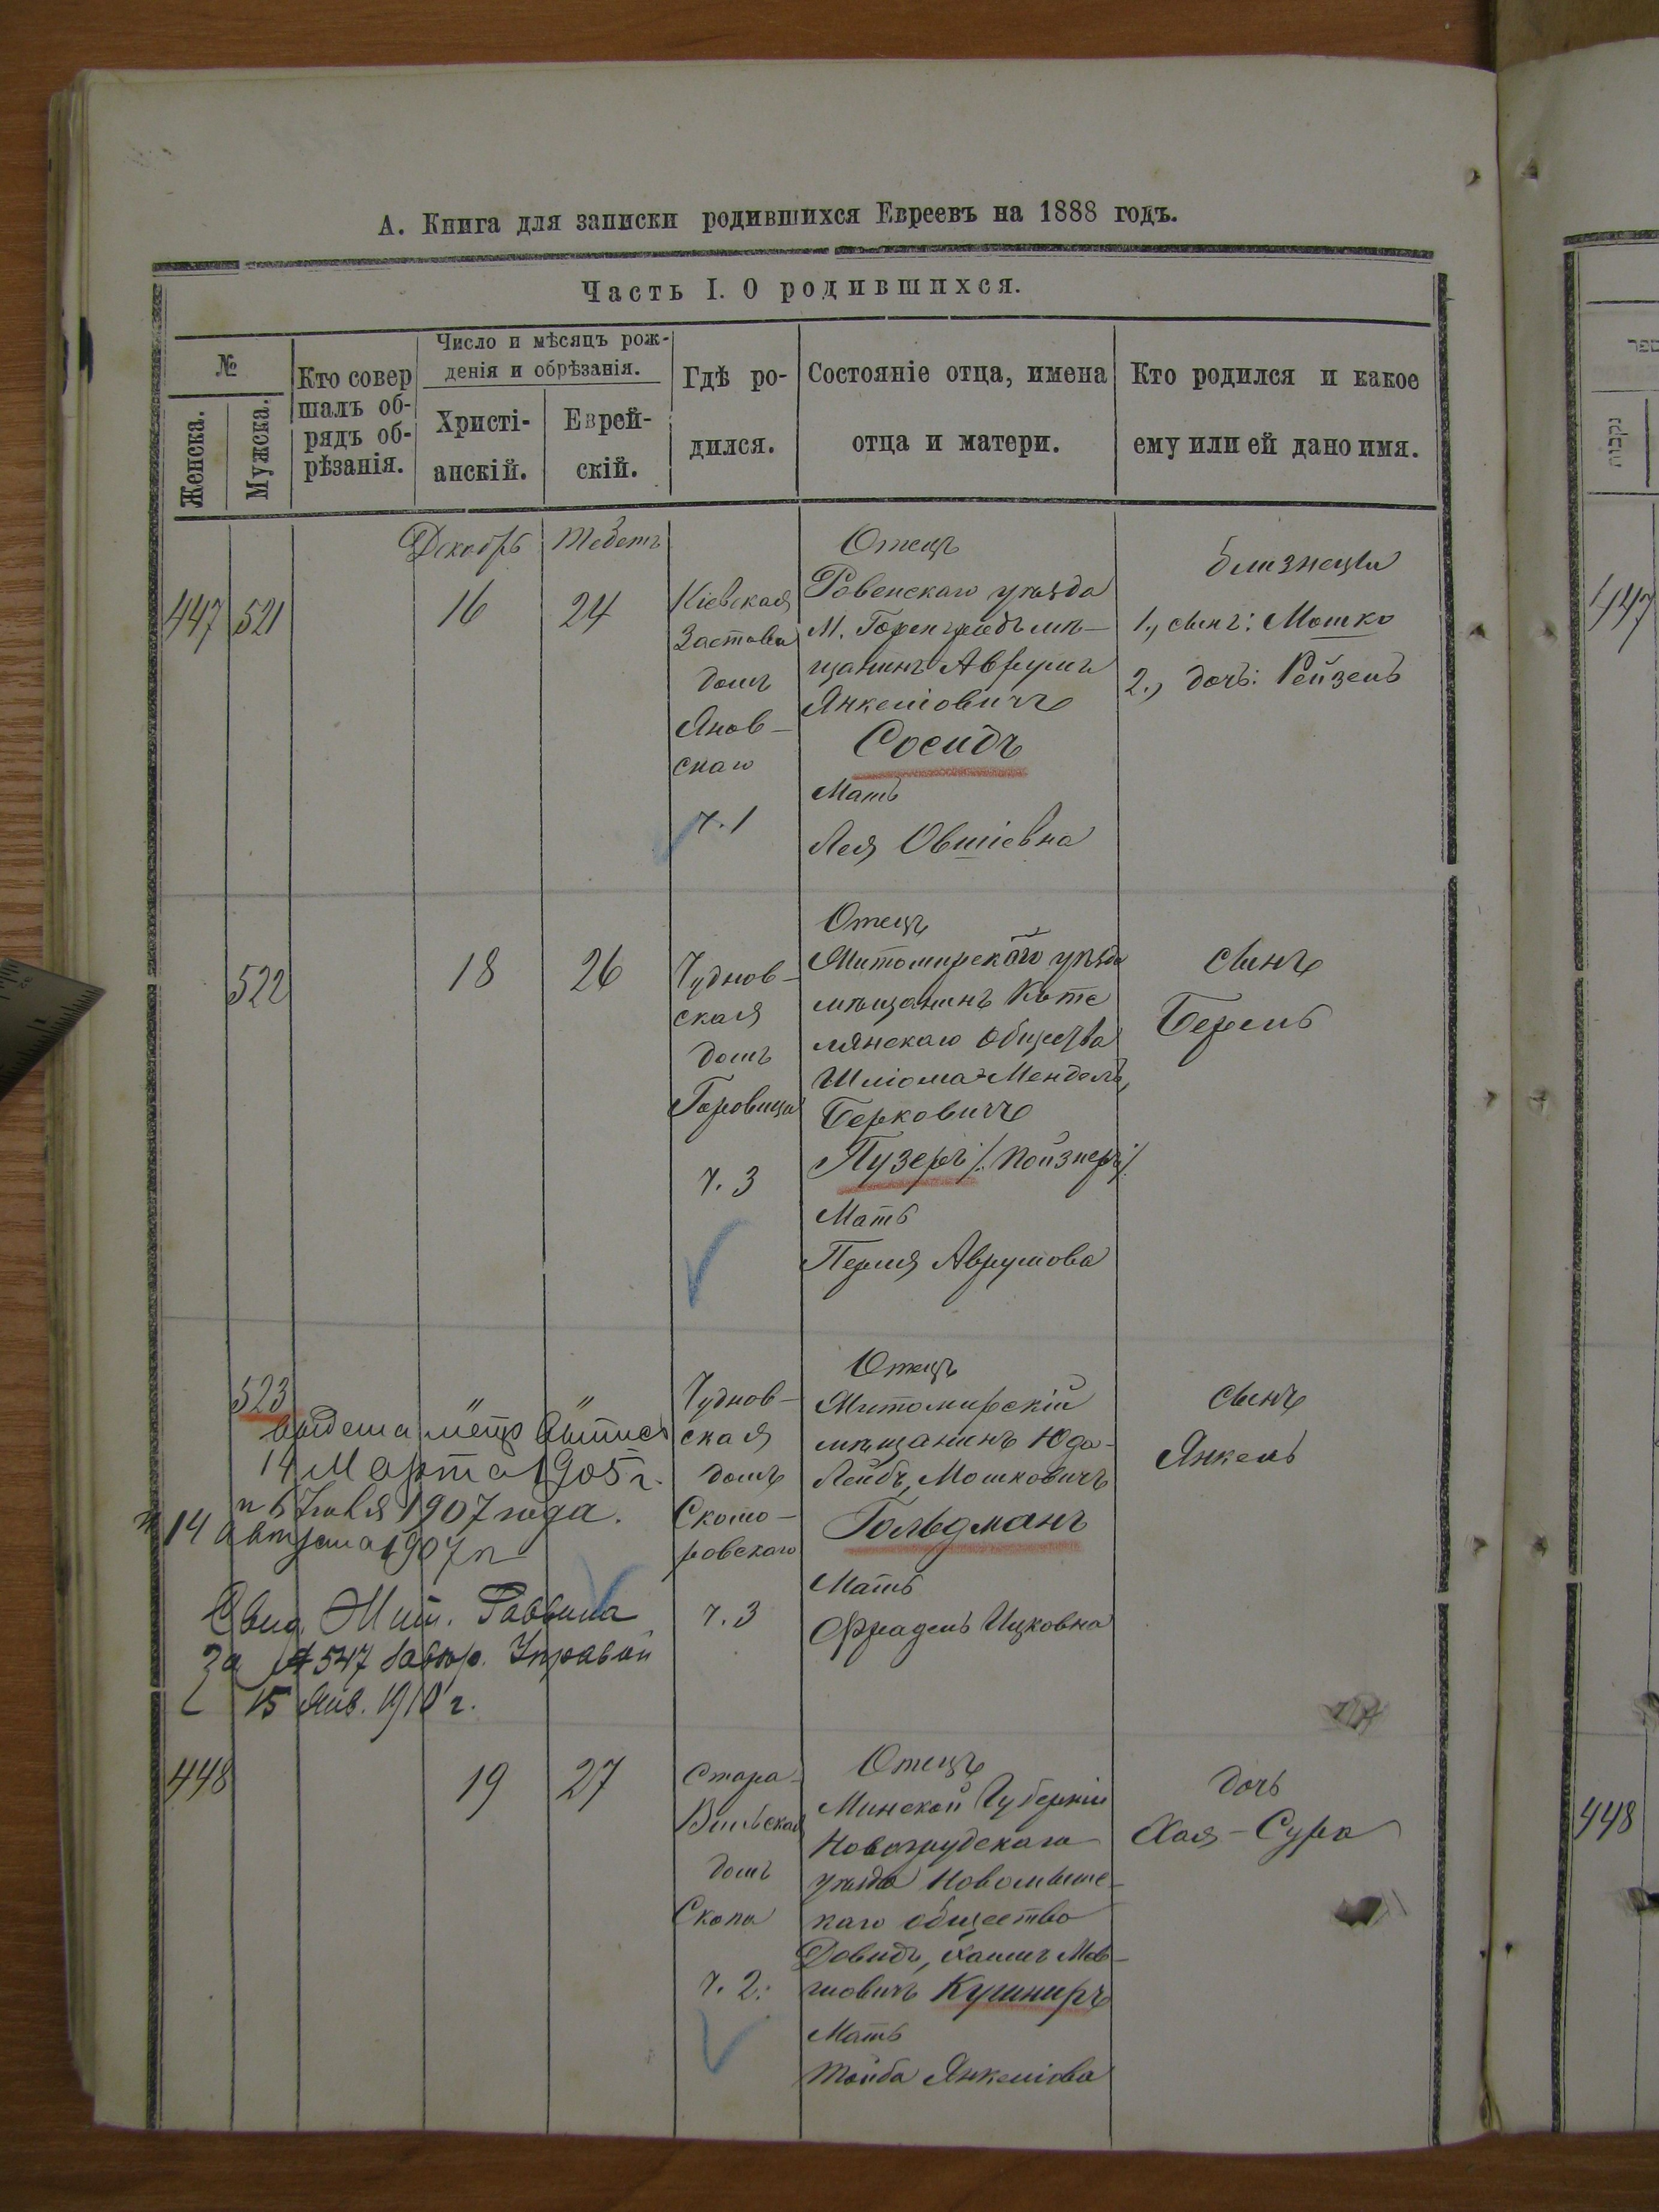 А. Книга для записки родившихся Евреевъ на 1888 годъ.
Часть I. О родившихся.
№
Женска.
Мужска.
Кто совер
шалъ об-
рядъ об-
рѣзанія.
Число и мѣсяцъ рож-
денія и обрѣзанія.
Христі-
анскій.
Еврей-
скій.
Гдѣ ро-
дился.
Состояніе отца, имена
отца и матери.
Кто родился и какое
ему или ей дано имя.
447
521
Декабрь
16
Тебетъ
24
Кіевская
Застава
домъ
Янов-
скаго
ч. 1
Отецъ
Ровенскаго уѣзда
М. Горенградъ мѣ-
щанинъ Аврумъ
Янкеліовичъ
Сосидъ
Мать
Лея Овшіевна
близнецы
1., сынъ: Мошко
2., дочь: Рейзель
522
18
26
Чуднов-
ская
домъ
Горовица
ч. 3
Отецъ
Житомирскаго уѣзда
мѣщанинъ Коте
лянскаго общества
Шліома-Мендель,
Берковичъ
Пузеръ /: Пойзнеръ:/
Мать
Перля Аврумова
сынъ
Берель
523
"
"
14 Марта 1905 г.
1907 года.
14 Августа 1907 г
Свид. Жит. Раввина
За № 547 Управой
15 Янв. 1910 г.
Чуднов-
ская
домъ
Скомо-
ровскаго
ч. 3
Отецъ
Житомирскій
мѣщанинъ Юда-
Лейбъ, Мошковичъ
Гольдманъ
Мать
Фрадель Ицковна
сынъ
Янкель
448
19
27
Стара-
Вильская
домъ
Скопа
ч. 2.
Отецъ
Минской Губерніи
Новогрудскаго
уѣзда Новомышс-
каго общество
Довидъ, Хаимъ Мов-
шовичъ Кушниръ
Мать
Тойба Янкеліова
дочь
Хая-Сура
ספר
נקבות
447
448